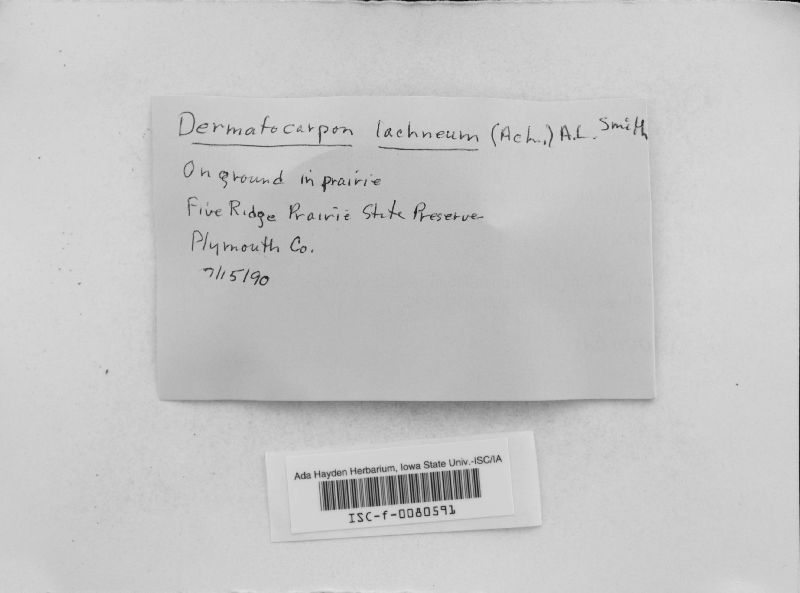 Dermatocarpon lachneum (Ach.,) A.L. Smith
On ground in prairie
Five Ridge Prairie State Preserve
Plymouth Co.
7/15/90
Ada Hayden Herbarium, Iowa State Univ.-ISC/IA
ISC-f-0080591